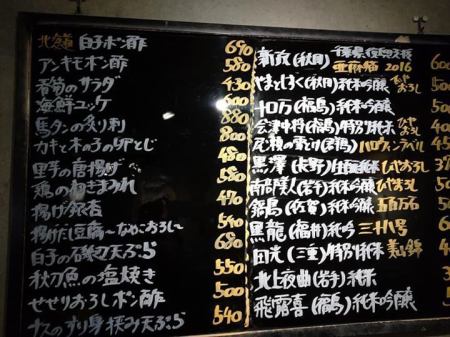 北海道 白子ポン酢 690
アンキモポン酢 580
春菊のサラダ 430
海鮮ユッケ 600
馬タンの炙り刺 880
カキと木の子の卵とじ 800
里芋の唐揚げ 480
鶏のねぎまみれ 580
揚げ銀杏 470
揚げだし豆腐~なめこおろし~ 540
白子の磯辺天ぷら 680
秋刀魚の塩焼き 550
せせりおろしポン酢 500
ナスのすり身挟み天ぷら 540
新政(秋田) 亜麻猫 2016 600
やまとしずく(秋田)純米吟醸 ひやおろし 50
十ロ万(福島)純米吟醸 500
会津中将(福島)特別純米 ひやおろし 45
尾瀬の雪どけ(群馬) ハロウィンラベル
黒澤(長野)生酛純米 ひやおろし
南部美人(岩手)純米吟醸 ひやおろし
鍋島(佐賀)純米吟醸 五百万石
黒龍(福井)純吟 三十八号
田光(三重)特別純米 美山錦
北上夜曲(岩手)純米
飛露喜(福島)純米吟醸